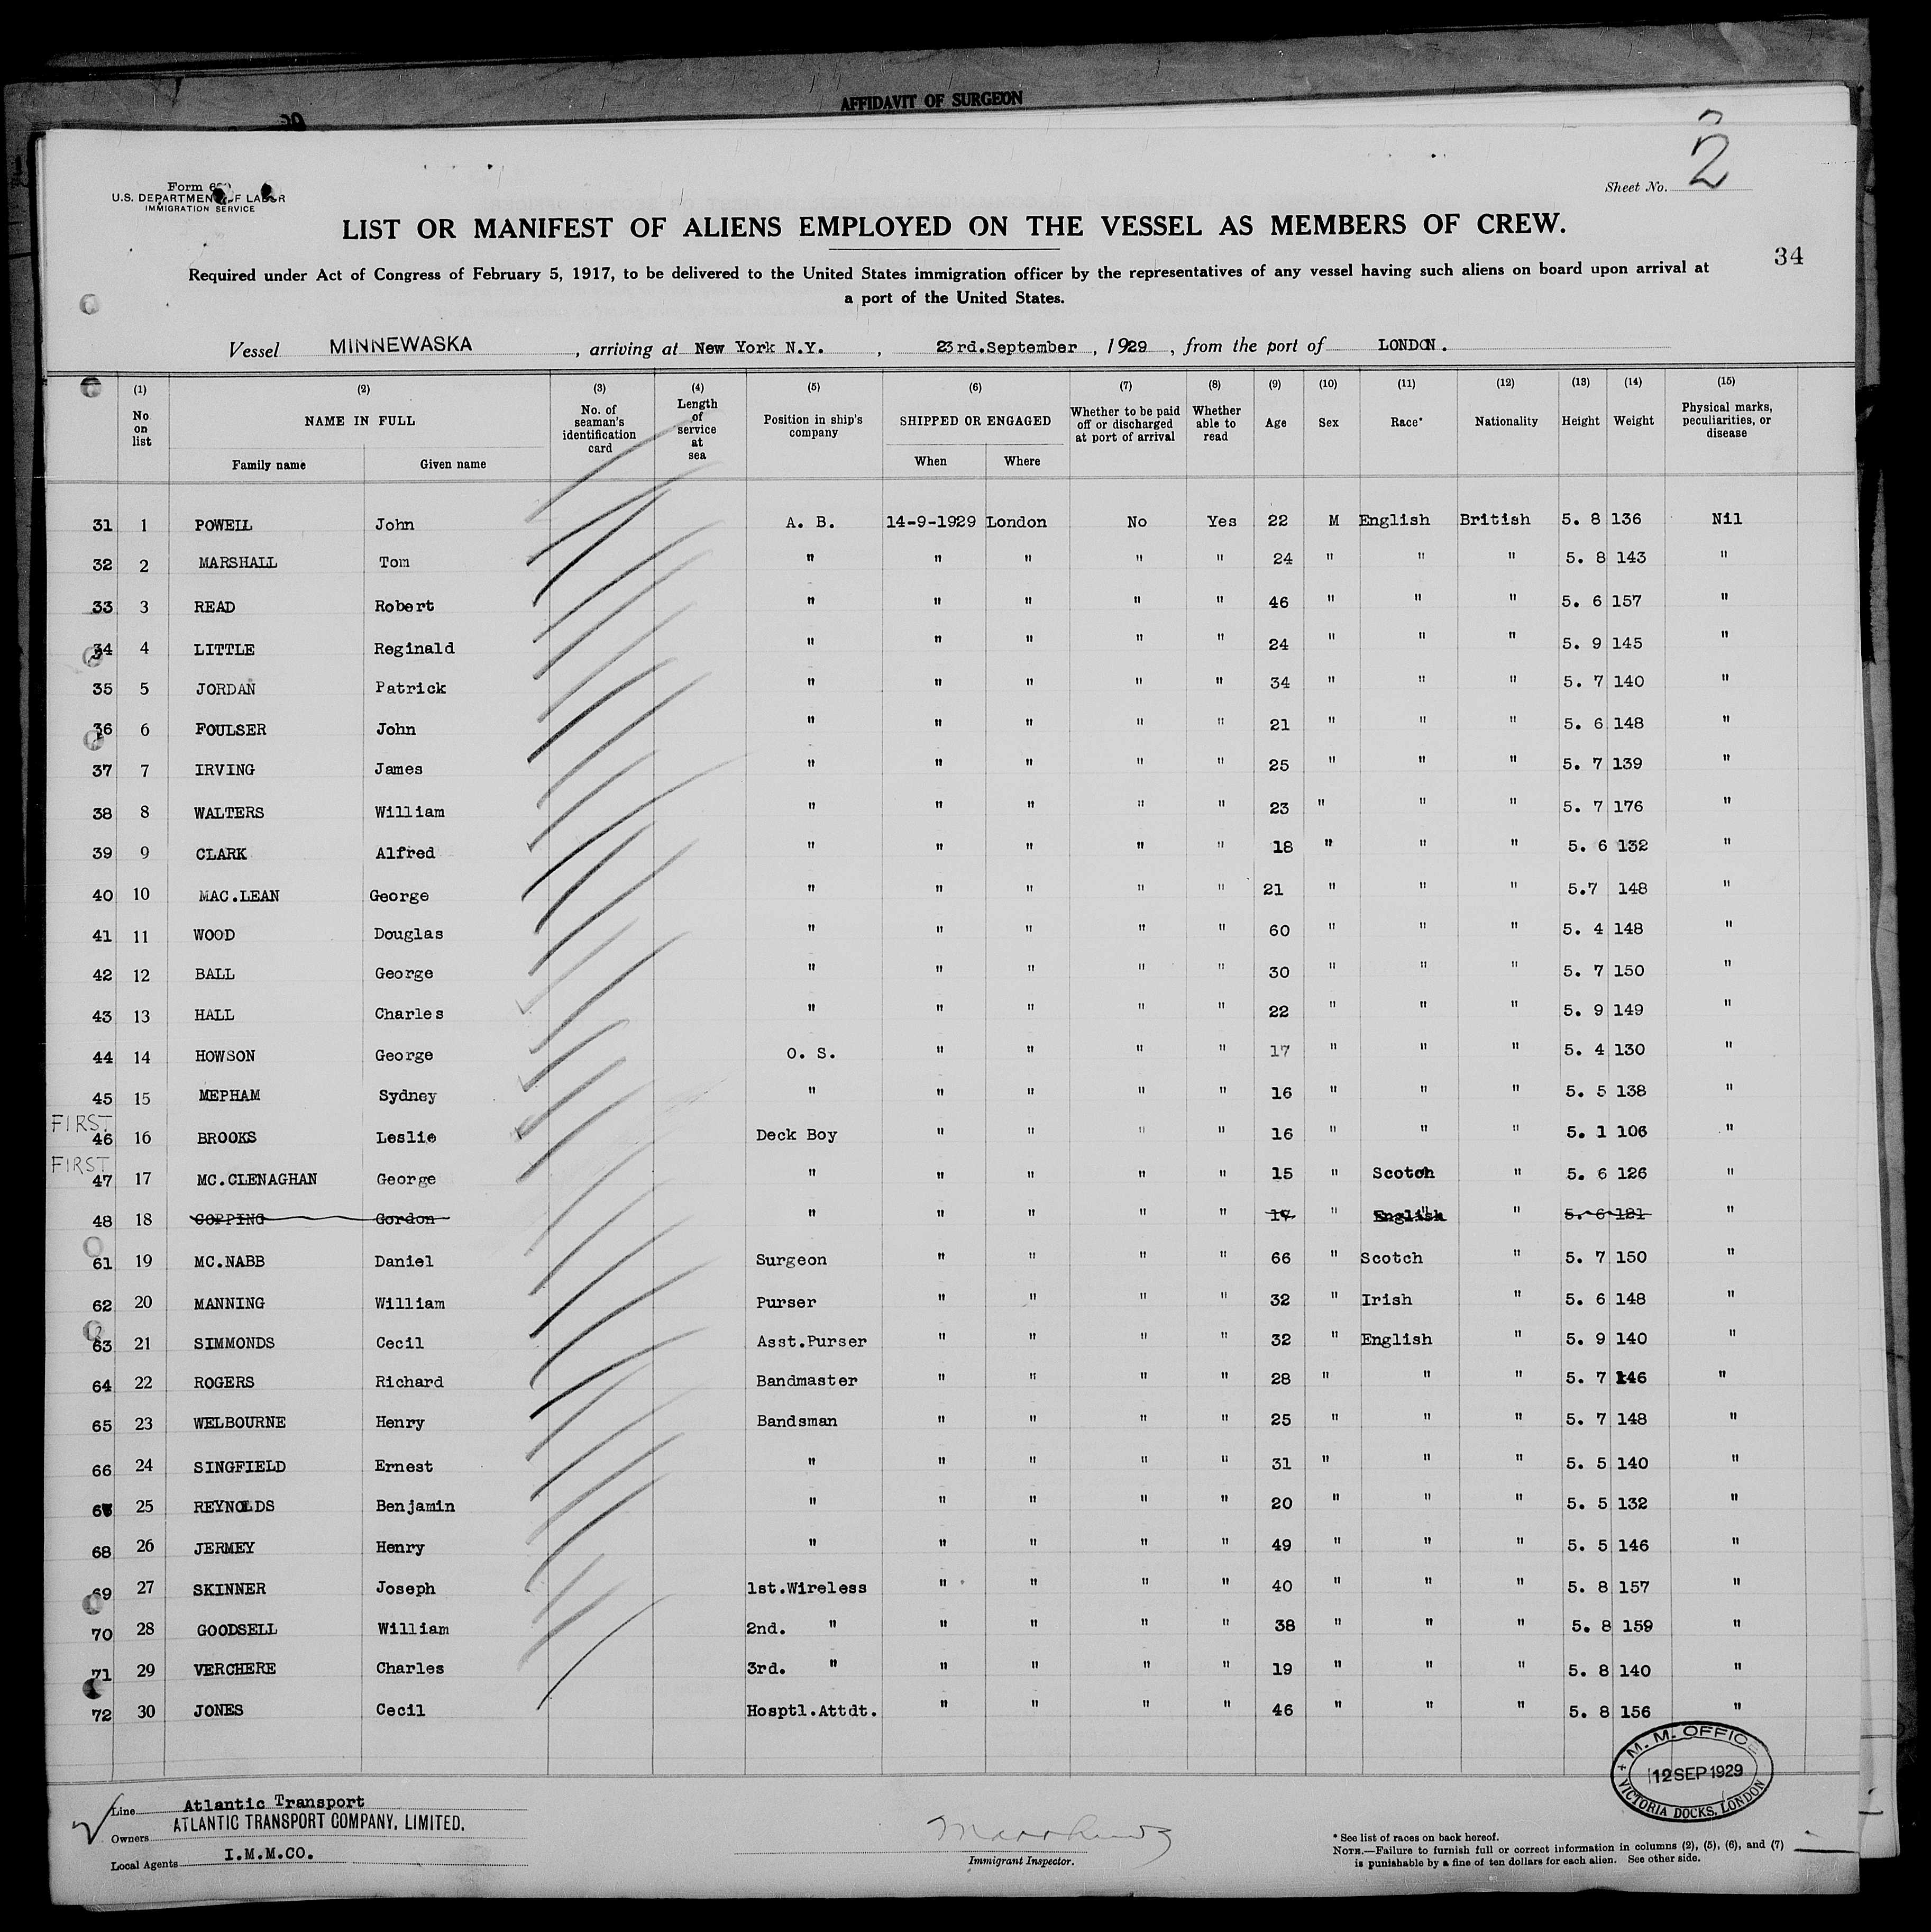 AFFIDAVIT OF SURGEON
2
Sheet No. 2
U.S. DEPARTMENT OF LABOR
IMMIGRATION SERVICE
LIST OR MANIFEST OF ALIENS EMPLOYED ON THE VESSEL AS MEMBERS OF CREW.
34
Required under Act of Congress of February 5, 1917, to be delivered to the United States immigration officer by the representatives of any vessel having such aliens on board upon arrival at
a port of the United States.
Vessel MINNEWASKA, arriving at New York N.Y., 23rd.September, 1929, from the port of LONDON.
(1) (2) (3) (4) (5) (6) (7) (8) (9) (10) (11) (12) (13) (14) (15)
No on list NAME IN FULL Family name Given name No. of seaman's identification card Length of service at sea Position in ship's company SHIPPED OR ENGAGED When Where Whether to be paid off or discharged at port of arrival Whether able to read Age Sex Race* Nationality Height Weight Physical marks, peculiarities, or disease
31 1 POWELL John A. B. 14-9-1929 London No Yes 22 M English British 5. 8 136 Nil
32 2 MARSHALL Tom " " " " " 24 " " " 5. 8 143 "
33 3 READ Robert " " " " " 46 " " " 5. 6 157 "
34 4 LITTLE Reginald " " " " " 24 " " " 5. 9 145 "
35 5 JORDAN Patrick " " " " " 34 " " " 5. 7 140 "
36 6 FOULSER John " " " " " 21 " " " 5. 6 148 "
37 7 IRVING James " " " " " 25 " " " 5. 7 139 "
38 8 WALTERS William " " " " " 23 " " " 5. 7 176 "
39 9 CLARK Alfred " " " " " 18 " " " 5. 6 132 "
40 10 MAC.LEAN George " " " " " 21 " " " 5.7 148 "
41 11 WOOD Douglas " " " " " 60 " " " 5. 4 148 "
42 12 BALL George " " " " " 30 " " " 5. 7 150 "
43 13 HALL Charles " " " " " 22 " " " 5. 9 149 "
44 14 HOWSON George O. S. " " " " 17 " " " 5. 4 130 "
45 15 MEPHAM Sydney " " " " " 16 " " " 5. 5 138 "
FIRST
46 16 BROOKS Leslie Deck Boy " " " " 16 " " " 5. 1 106 "
FIRST
47 17 MC.CLENAGHAN George " " " " " 15 " Scotch " 5. 6 126 "
48 18 COPPING Gordon " " " " " 17 " English " 5. 6 121 "
61 19 MC.NABB Daniel Surgeon " " " " 66 " Scotch " 5. 7 150 "
62 20 MANNING William Purser " " " " 32 " Irish " 5. 6 148 "
63 21 SIMMONDS Cecil Asst.Purser " " " " 32 " English " 5. 9 140 "
64 22 ROGERS Richard Bandmaster " " " " 28 " " " 5. 7 146 "
65 23 WELBOURNE Henry Bandsman " " " " 25 " " " 5. 7 148 "
66 24 SINGFIELD Ernest " " " " " 31 " " " 5. 5 140 "
67 25 REYNOLDS Benjamin " " " " " 20 " " " 5. 5 132 "
68 26 JERMEY Henry " " " " " 49 " " " 5. 5 146 "
69 27 SKINNER Joseph 1st.Wireless " " " " 40 " " " 5. 8 157 "
70 28 GOODSELL William 2nd. " " " " " 38 " " " 5. 8 159 "
71 29 VERCHERE Charles 3rd. " " " " " 19 " " " 5. 8 140 "
72 30 JONES Cecil Hosptl.Attdt. " " " " 46 " " " 5. 8 156 "
M. M. OFFICE
12 SEP 1929
VICTORIA DOCKS, LONDON
Line Atlantic Transport
Owners ATLANTIC TRANSPORT COMPANY, LIMITED.
Local Agents I.M.M.CO.
Immigrant Inspector.
* See list of races on back hereof.
NOTE.—Failure to furnish full or correct information in columns (2), (5), (6), and (7)
is punishable by a fine of ten dollars for each alien. See other side.